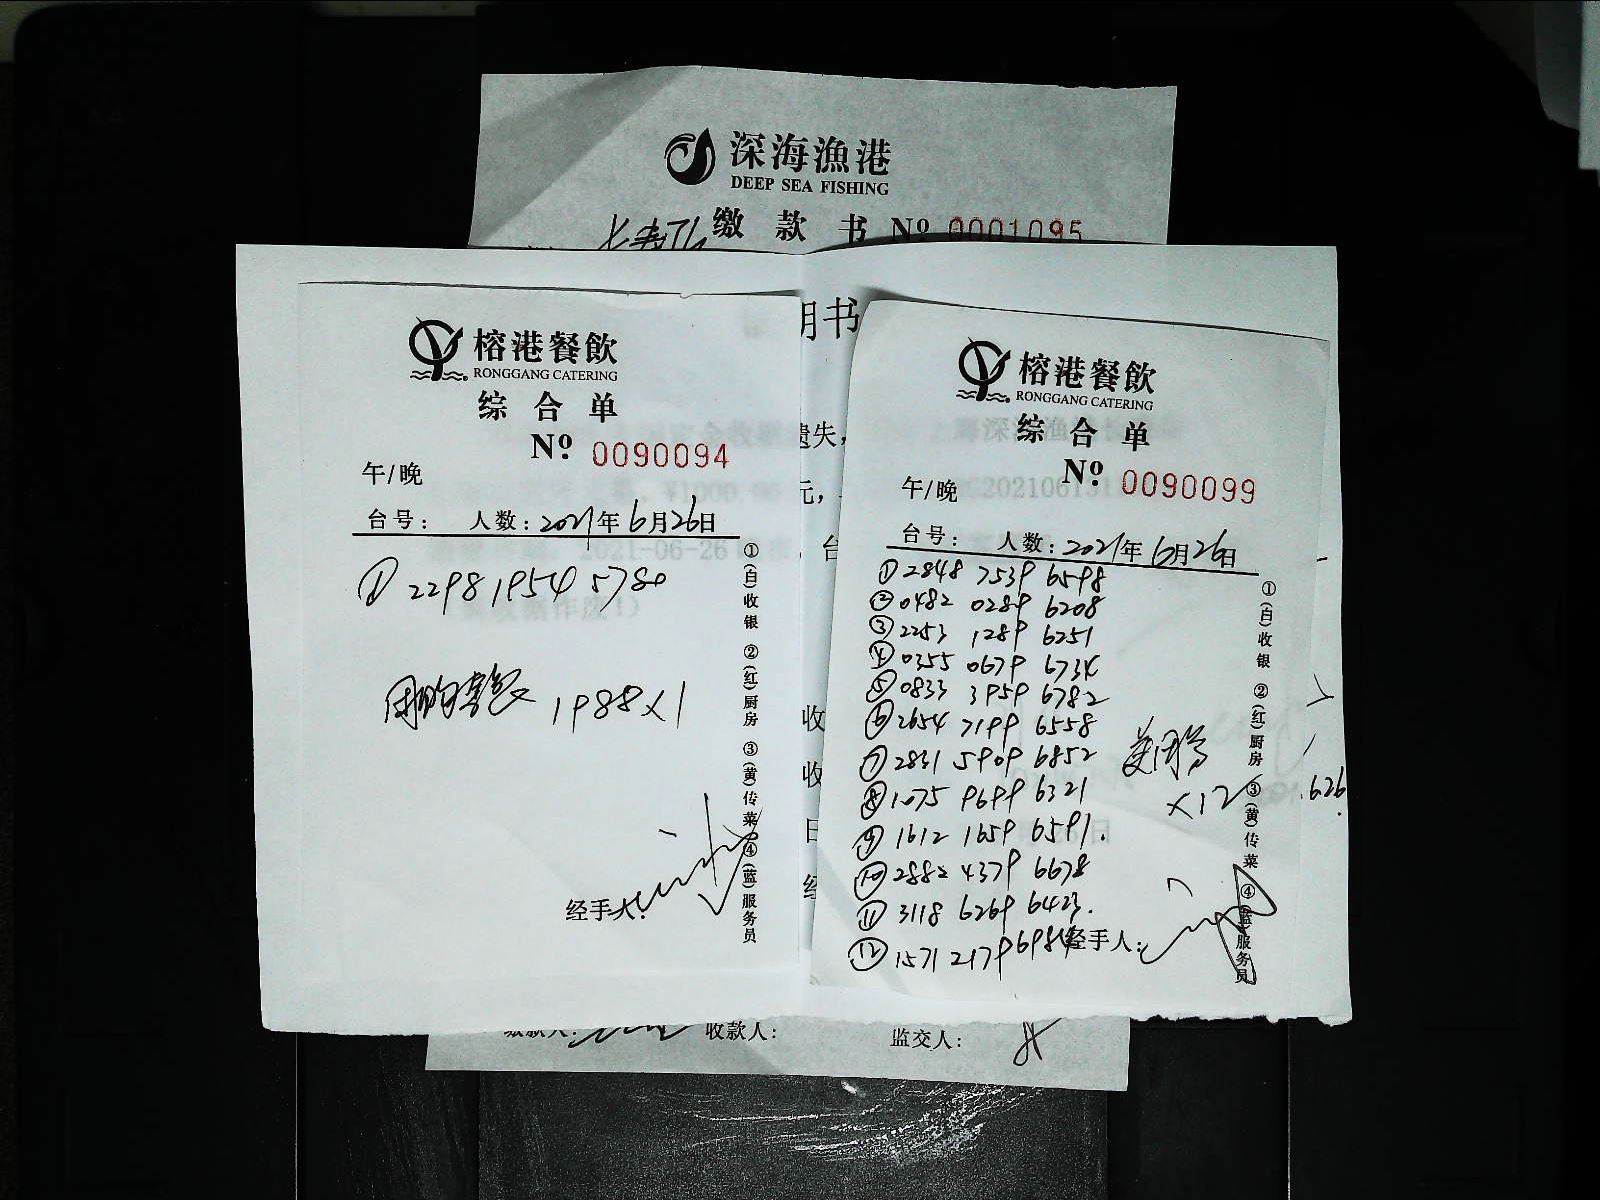 深海漁港
DEEP SEA FISHING
缴款书 No 0001095
明书
遗失,
元,
台
收
收
日
榕港餐飲
RONGGANG CATERING
综合单
No. 0090094
午/晚
台号: 人数: 2021年6月26日
① 2298 1954 5780
1988×1
经手人:
①(白)收银 ②(红)厨房 ③(黄)传菜 ④(蓝)服务员
榕港餐飲
RONGGANG CATERING
综合单
No. 0090099
午/晚
台号: 人数: 2021年6月26日
① 2848 7539 6598
② 0482 0289 6208
③ 2253 1289 6251
④ 0355 0679 6734
⑤ 0833 3959 6782
⑥ 2654 7199 6558
⑦ 2831 5909 6852
⑧ 1075 9699 6321
⑨ 1612 1659 6591.
⑩ 2882 4379 6678
⑪ 3118 6269 6423.
⑫ 1571 2179 698
美团券
×12
经手人:
①(白)收银 ②(红)厨房 ③(黄)传菜 ④(蓝)服务员
.626
缴款人:
收款人:
监交人: